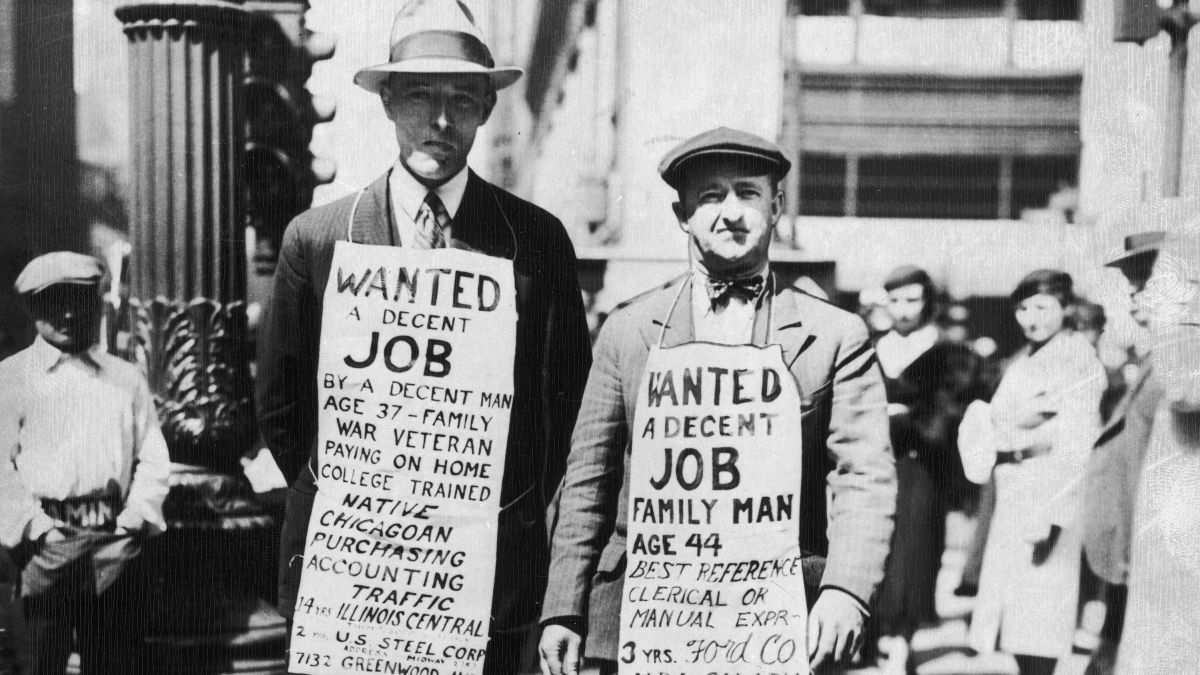 WANTED
A DECENT
JOB
BY A DECENT MAN
AGE 37-FAMILY
WAR VETERAN
PAYING ON HOME
COLLEGE TRAINED
NATIVE
CHICAGOAN
PURCHASING
ACCOUNTING
TRAFFIC
14 YRS. ILLINOIS CENTRAL
2 YRS. U.S. STEEL CORP
ADDRESS MIDWAY
7132 GREENWOOD
WANTED
A DECENT
JOB
FAMILY MAN
AGE 44
BEST REFERENCE
CLERICAL OR
MANUAL EXPR-
3 YRS. Ford CO